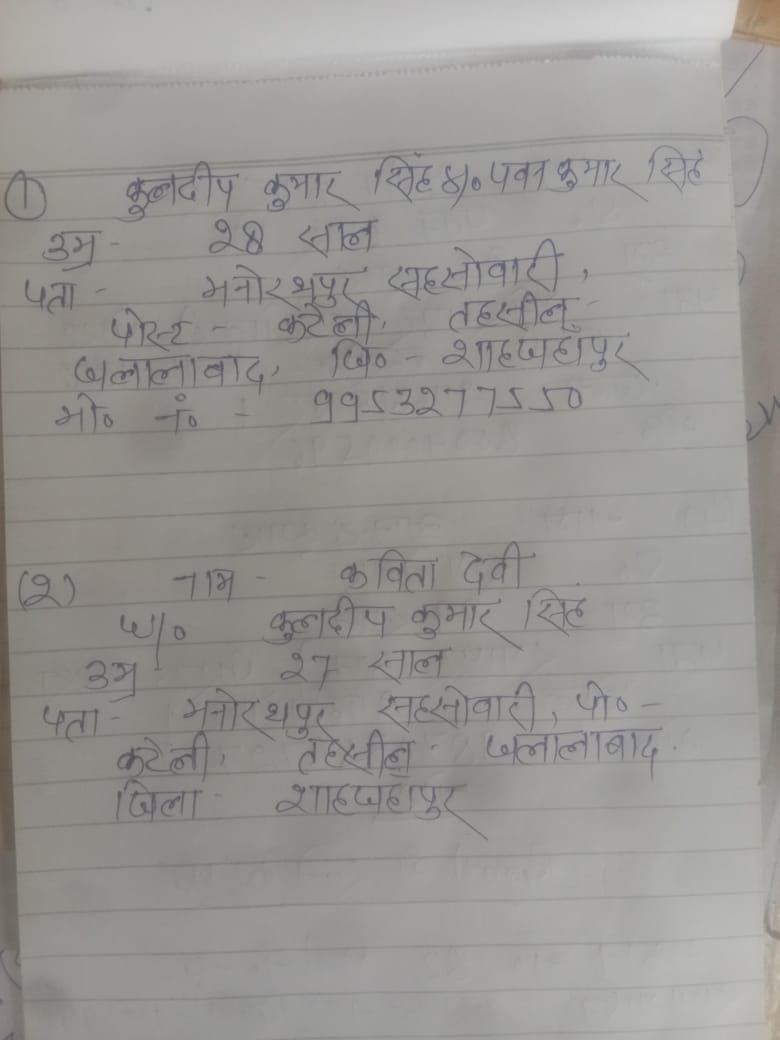 ① कुलदीप कुमार सिंह S/० पवन कुमार सिंह
उम्र - 28 साल
पता - मनोरथपुर सहसोवारी,
पोस्ट - कटेली, तहसील -
जलालाबाद, जि० - शाहजहापुर
मो० नं० - 9953277550
(2) नाम - कविता देवी
W/० कुलदीप कुमार सिंह
उम्र 27 साल
पता - मनोरथपुर सहसोवारी, पो० -
कटेली, तहसील - जलालाबाद.
जिला - शाहजहापुर